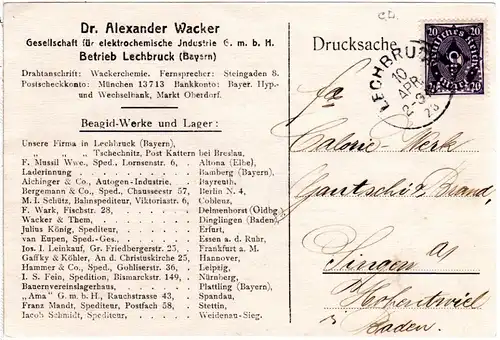 Dr. Alexander Wacker
Gesellschaft für elektrochemische Jndustrie G. m. b. H.
Betrieb Lechbruck (Bayern)
Drahtanschrift: Wackerchemie. Fernsprecher: Steingaden 8.
Postscheckkonto: München 13713 Bankkonto: Bayer. Hyp.-
und Wechselbank, Markt Oberdorf.
Beagid-Werke und Lager:
Unsere Firma in Lechbruck (Bayern),
„ „ „ Tschechnitz, Post Kattern bei Breslau,
F. Mussil Wwe., Sped., Lornsenstr. 6, . Altona (Elbe),
Laderinnung . . . . . . Bamberg (Bayern),
Aichinger & Co., Autogen-Industrie, . . Bayreuth,
Bergemann & Co., Sped., Chausseestr 57, Berlin N. 4,
M. I. Schütz, Bahnspediteur, Viktoriastr. 6, Coblenz,
F. Wark, Fischstr. 28, . . . . Delmenhorst (Oldbg.)
Wacker & Them, . . . . . Dinglingen (Baden),
Julius König, Spediteur, . . . . Erfurt,
van Eupen, Sped.-Ges., . . . . Essen a. d. Ruhr,
Jos. I. Leinkauf, Gr. Friedbergerstr. 23, . Frankfurt a. M.
Gaffky & Köhler, An d. Christuskirche 25, Hannover,
Hammer & Co., Sped., Gohliserstr. 36, . Leipzig,
I. S. Fein, Spedition, Bismarckstr. 149, . Nürnberg,
Bauernvereinslagerhaus, . . . . Plattling (Bayern),
"Ama" G. m. b. H., Rauchstrasse 43, . . Spandau,
Franz Mandt, Spediteur, Postfach 58, . Stettin,
Iacob Schmidt, Spediteur, . . . Weidenau-Sieg.
Drucksache
LECHBRUCK
10
APR.
2-3
23
Deutsches Reich
20 20
20 20
Fa
Calorie-Werk
Gantschi & Brand,
Singen a/
Hohentwiel
Baden.